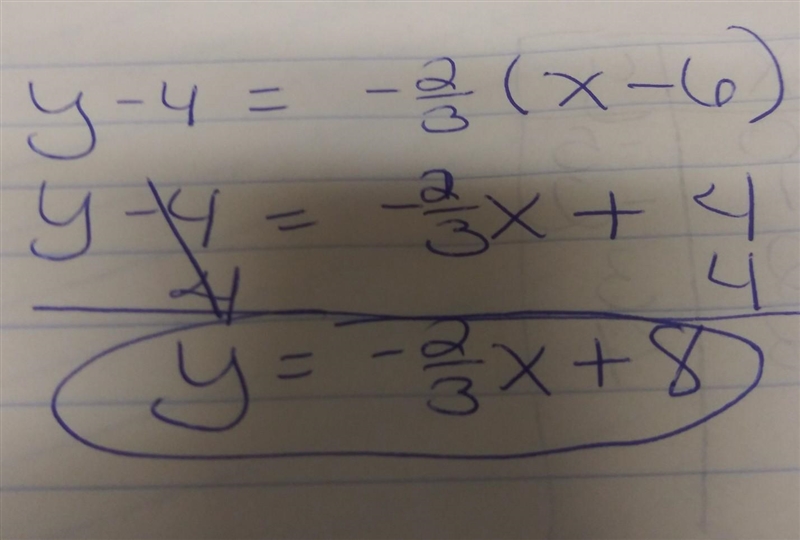 y - 4 = -2/3 (x - 6)
y - 4 = -2/3 x + 4
4 4
y = -2/3 x + 8